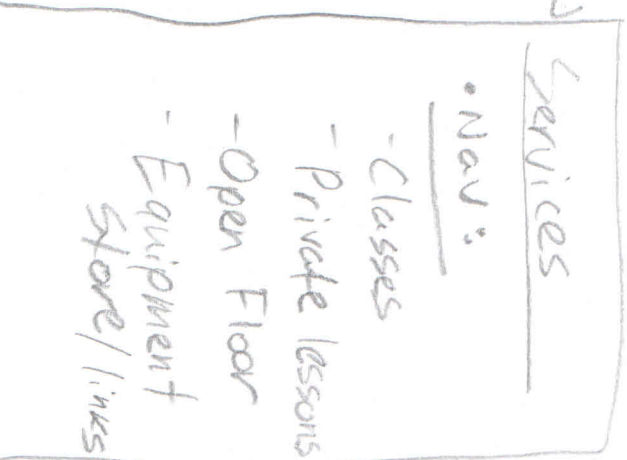 Services
• Nav:
- Classes
- Private lessons
- Open Floor
- Equipment
store/links